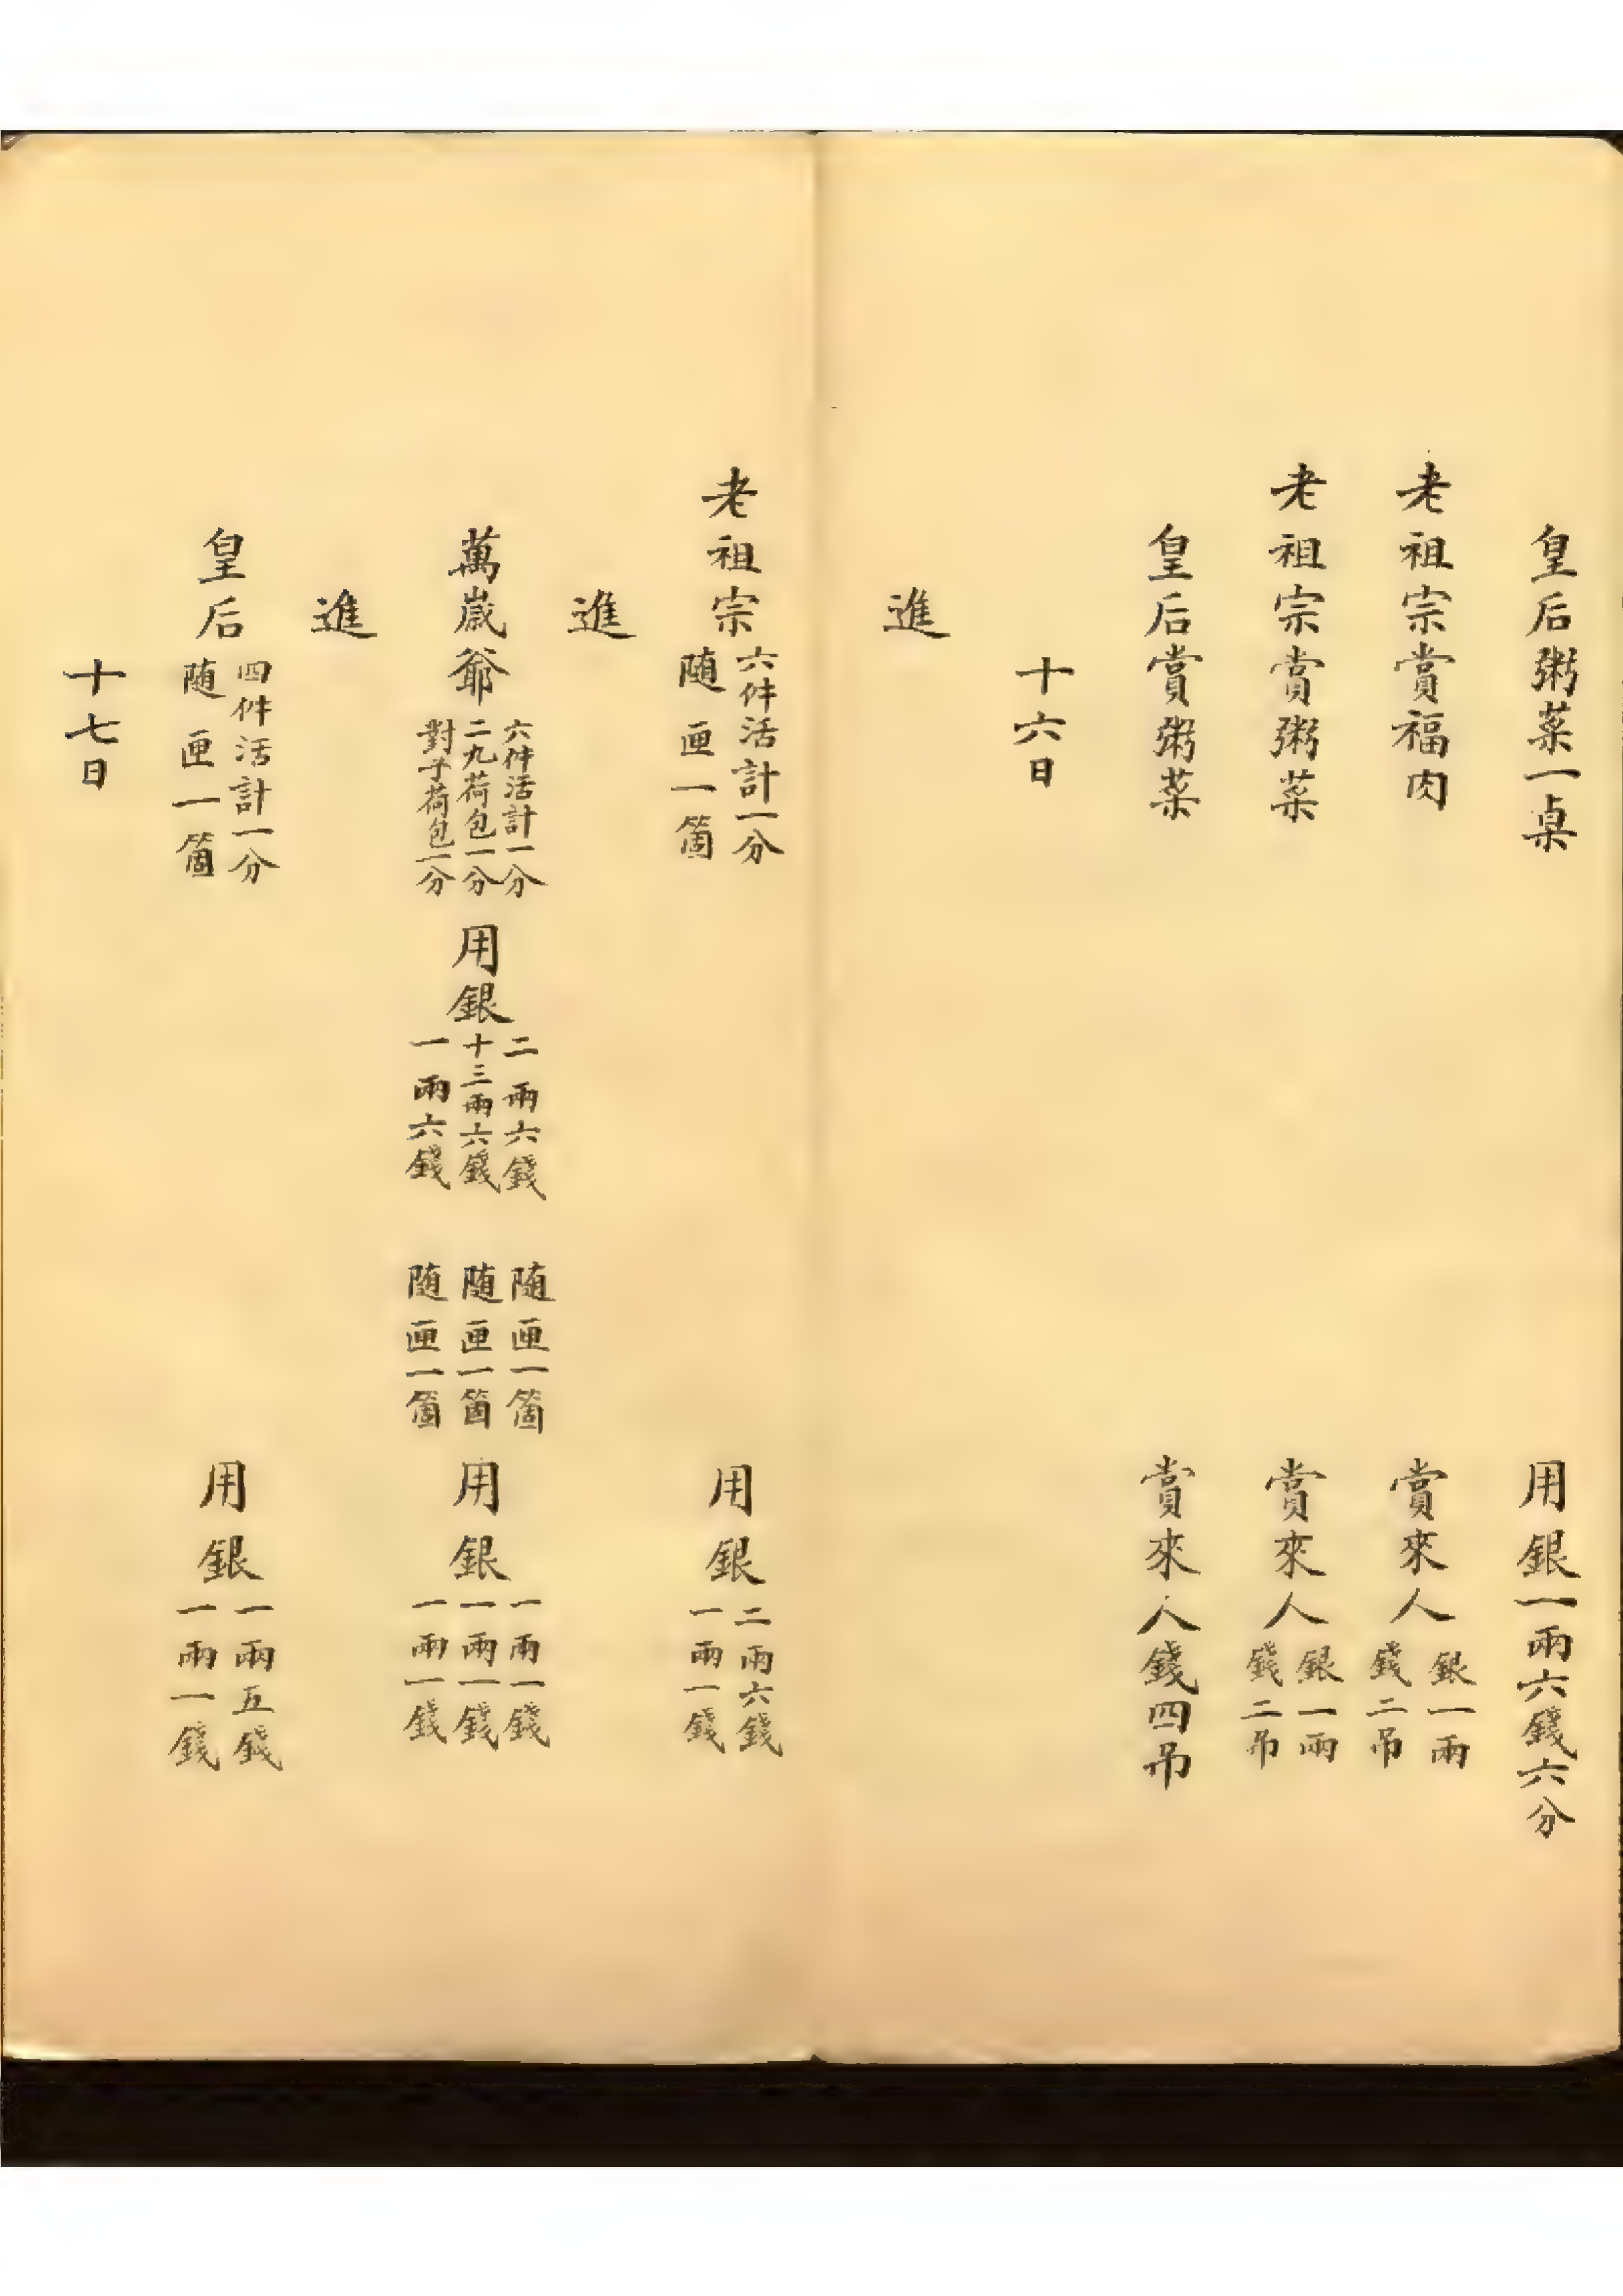 皇后粥菜一桌 用銀一兩六錢六分
老祖宗賞福肉 賞來人銀一兩錢二吊
老祖宗賞粥菜 賞來人銀一兩錢二吊
皇后賞粥菜 賞來人錢四吊
十六日
進
老祖宗六件活計一分随匣一箇 用銀二兩六錢一兩一錢
進
萬歲爺六件活計一分二九荷包一分對子荷包一分 用銀二兩六錢十三兩六錢一兩六錢 随匣一箇随匣一箇随匣一箇 用銀一兩一錢一兩一錢一兩一錢
進
皇后四件活計一分随匣一箇 用銀一兩五錢一兩一錢
十七日